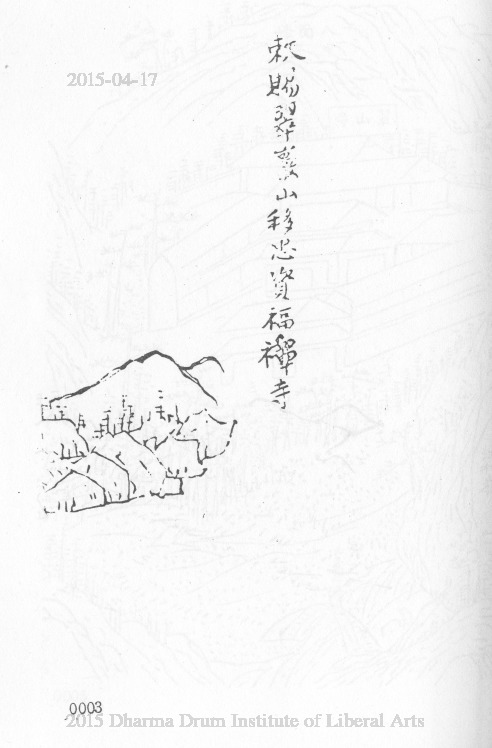 2015-04-17
敕賜翠巖山移忠資福禪寺
0003
2015 Dharma Drum Institute of Liberal Arts